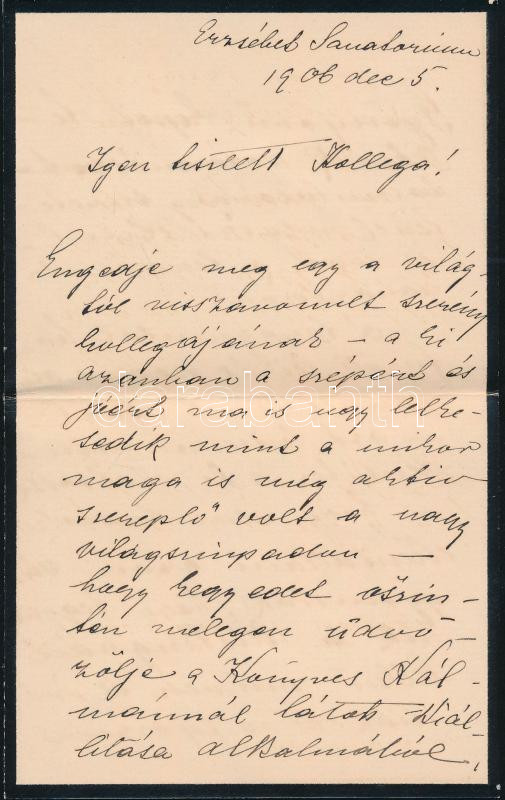 Erzsébet Sanatorium
1906 dec 5.
Igen tisztelt Kollega!
Engedje meg egy a világ-
tól visszavonult szerény
kollegájának – a ki
azonban a szépért és
jóért ma is ugy lelke-
sedik mint a mikor
maga is még aktiv
"szereplő" volt a nagy
világszinpadon –
hogy kegyedet őszin-
tén melegen üdvö-
zölje a Könyves Kál-
mánnál látott kiál-
litása alkalmából,
darabanth